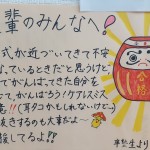 輩のみんなへ!
式が近づいてきて不安
なっているときだと思うけど
でがんばってきた自分を
って、がんばろう!ケアレスミス
意!!(オタコかもしれないけど…)
抜きするのも大事だよ〜
援してるよ!!
合格
卒塾生より